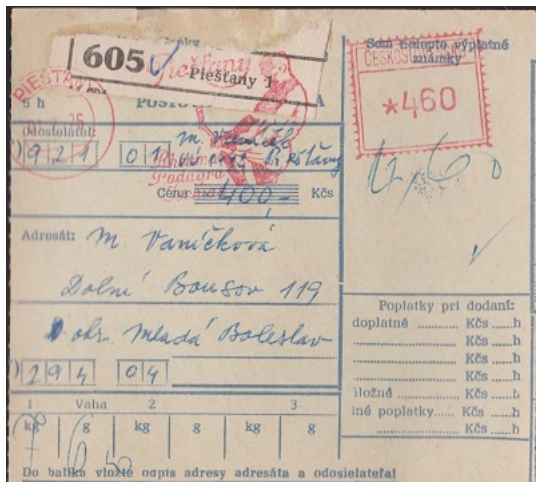 605
Piešťany 1
Piešťany
Sem nelepte výplatné
známky
ČESKOSLOVENSKO
*460
PIEŠŤANY
5 h
Odosielateľ:
M. Vaníček
921 01
Podagra
Cena 400,- Kčs
12,60
Adresát: M. Vaníčková
Dolní Bousov 119
okr. Mladá Boleslav
294 04
Poplatky pri dodaní:
doplatné ........... Kčs .....h
Kčs .....h
Kčs .....h
Kčs .....h
iné poplatky..... Kčs .....h
Kčs .....h
1 Váha 2 3
kg g kg g kg g
7 50
Do balíka vložte odpis adresy adresáta a odosielateľa!